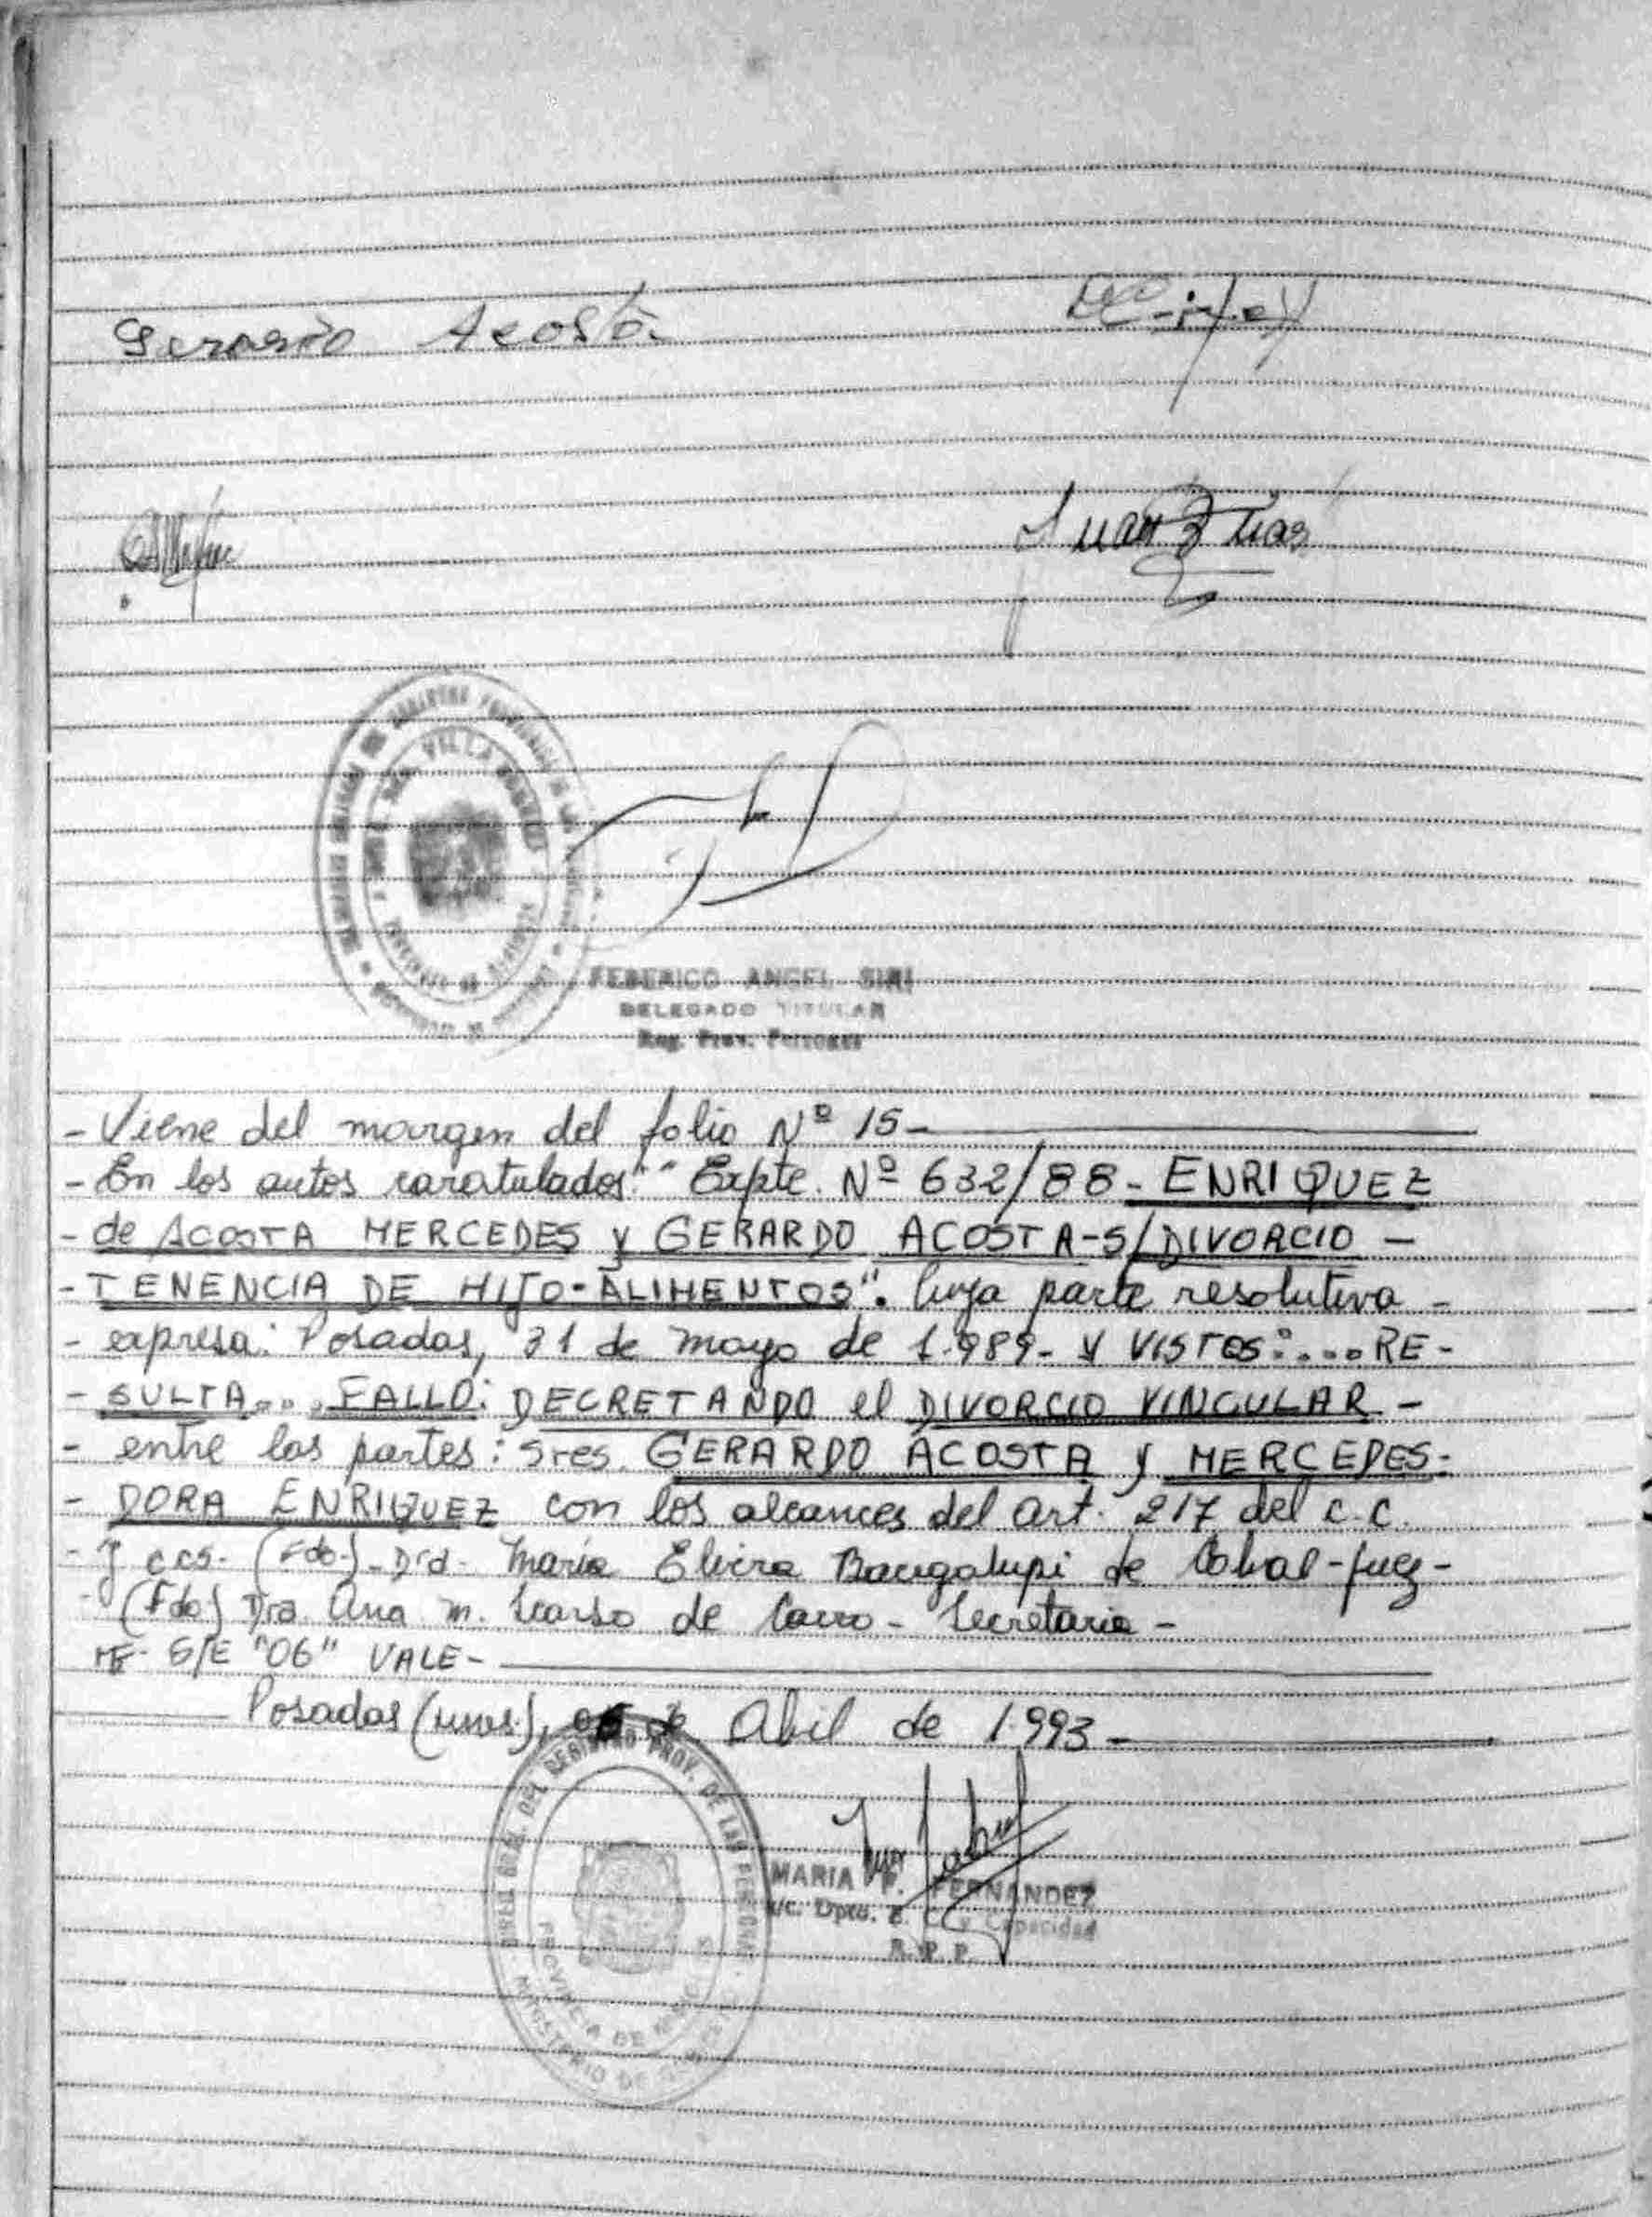 Gerardo Acosta
Juan
VILLA
FEDERICO ANGEL SIRI
DELEGADO TITULAR
Reg. Prov. Personas
- Viene del margen del folio Nº 15 -
- En los autos caratulados: " Expte. Nº 632/88 - ENRIQUEZ
- de ACOSTA MERCEDES y GERARDO ACOSTA - S/DIVORCIO -
- TENENCIA DE HIJO - ALIMENTOS". Cuya parte resolutiva -
- expresa: Posadas, 31 de mayo de 1.989 - Y VISTOS: .... RE -
- SULTA.... FALLO: DECRETANDO el DIVORCIO VINCULAR -
- entre las partes: Sres. GERARDO ACOSTA y MERCEDES -
- DORA ENRIQUEZ con los alcances del art. 217 del C.C.
- y ccs. (Fdo.) - Dra. María Elvira de Cabal - Juez -
- (Fdo) Dra. Ana M. de - Secretaria -
S/E "06" VALE -
Posadas (Mnes.), 06 de Abril de 1.993 -
DEL REGISTRO PROV. DE LAS PERSONAS
PROVINCIA DE
MINISTERIO DE
MARIA F. FERNANDEZ
a/c. Dpto. E. C. y Capacidad
R. P. P.